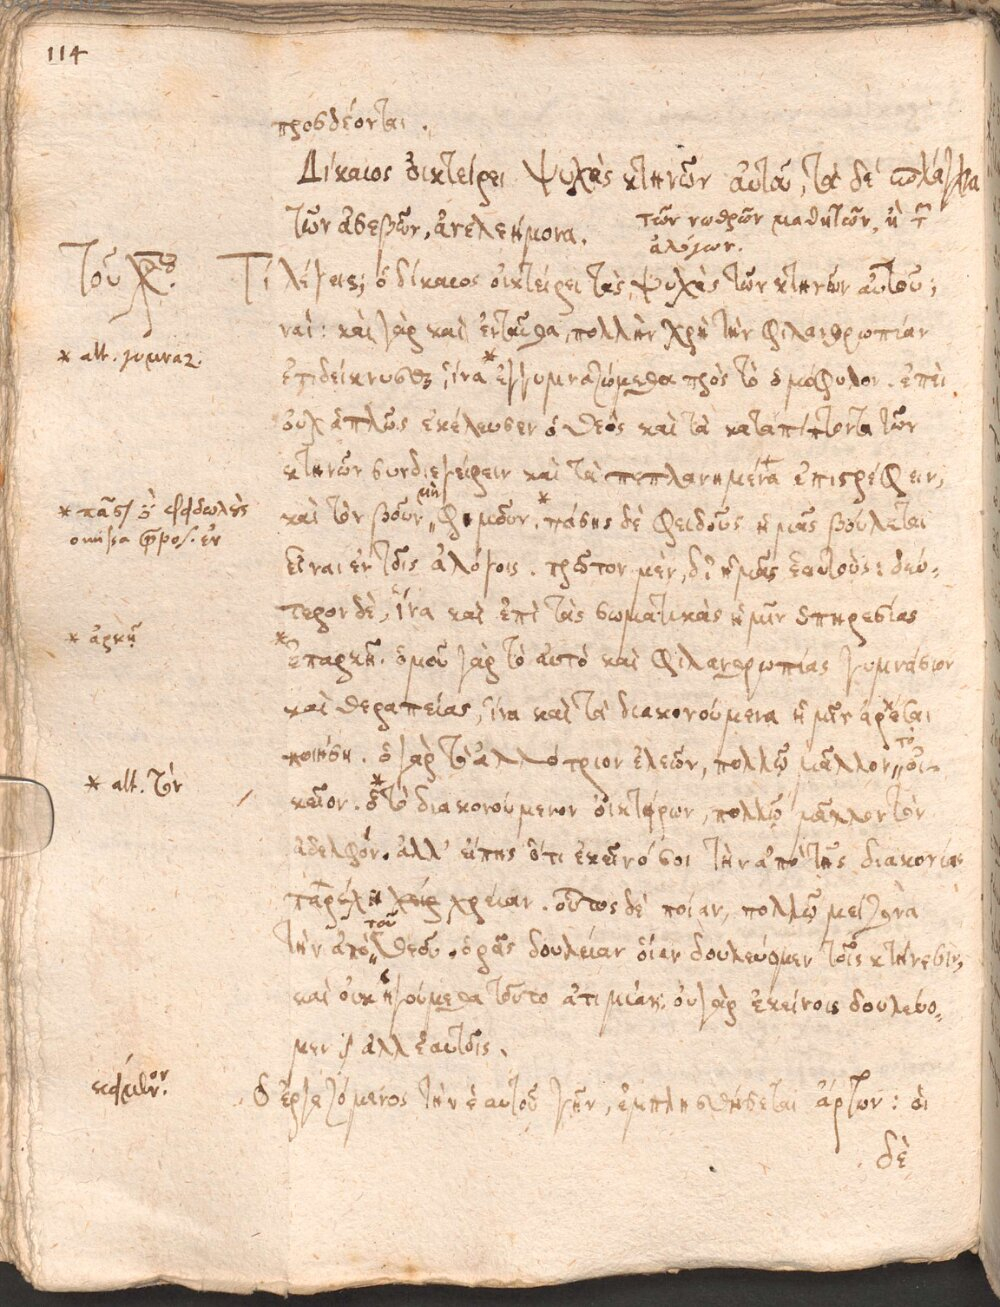 114
προσδέονται.
Δίκαιος οἰκτείρει ψυχὰς κτηνῶν αὐτοῦ, τὰ δὲ σπλάγχνα
τῶν ἀσεβῶν, ἀνελεήμονα.
τῶν νωθρῶν μαθητῶν, ἢ τ̃
ἀλόγων.
Τοῦ Χρ.
Τί λέγεις; ὁ δίκαιος οἰκτείρει τὰς ψυχὰς τῶν κτηνῶν αὐτοῦ;
ναί: καὶ γὰρ καὶ ἐνταῦθα, πολλὴν χρὴ τὴν φιλανθρωπίαν
* alt. γυμναζ.
ἐπιδείκνυσθαι, ἵνα * ἐγγυμναζώμεθα πρὸς τὸ ὁμόφυλον. ἐπεὶ
οὐχ ἁπλῶς ἐκέλευσεν ὁ θεὸς καὶ τὰ καταπίπτοντα τῶν
κτηνῶν συνδιεγείρειν καὶ τὰ πεπλανημένα ἐπιστρέφειν,
καὶ τὸν βοῦν μὴ φιμοῦν. * πάσης δὲ φειδοῦς ἡμᾶς βούλεται
εἶναι ἐν τοῖς ἀλόγοις. πρῶτον μὲν, δι' ἡμᾶς ἑαυτούς: δεύ-
τερον δὲ, ἵνα καὶ ἐπὶ τὰς σωματικὰς ἡμῖν ὑπηρεσίας
* ἀρκῇ
* ἐπαρκῇ. ὁμοῦ γὰρ τὸ αὐτὸ καὶ φιλανθρωπίας γυμνάσιον
καὶ θεραπείας, ἵνα καὶ τὰ διακονούμενα ἡμῖν ἀρκέσαι
ποιήσῃ. ὁ γὰρ τὸ ἀλλότριον ἐλεῶν, πολλῷ μᾶλλον τὸ οἰ-
* alt. τὸν
κεῖον. ὁ * τὸ διακονούμενον οἰκτείρων, πολλῷ μᾶλλον τὸν
ἀδελφόν. ἀλλ' εἴπῃς ὅτι ἐκεῖνό σοι τὴν ἀπὸ τῆς διακονίας
παρέχει χρείαν. οὗτος δὲ ποίαν, πολλῷ μείζονα
τὴν ἀπὸ τοῦ θεοῦ. ὁρᾷς δουλείαν οἵαν δουλεύομεν τοῖς κτήνεσιν,
καὶ οὐχ ἡγούμεθα τοῦτο ἀτιμίαν. οὐ γὰρ ἐκείνοις δουλεύο-
μεν ἀλλ' ἑαυτοῖς.
κείμενον.
ὁ ἐργαζόμενος τὴν ἑαυτοῦ γῆν, ἐμπλησθήσεται ἄρτων: οἱ
δὲ